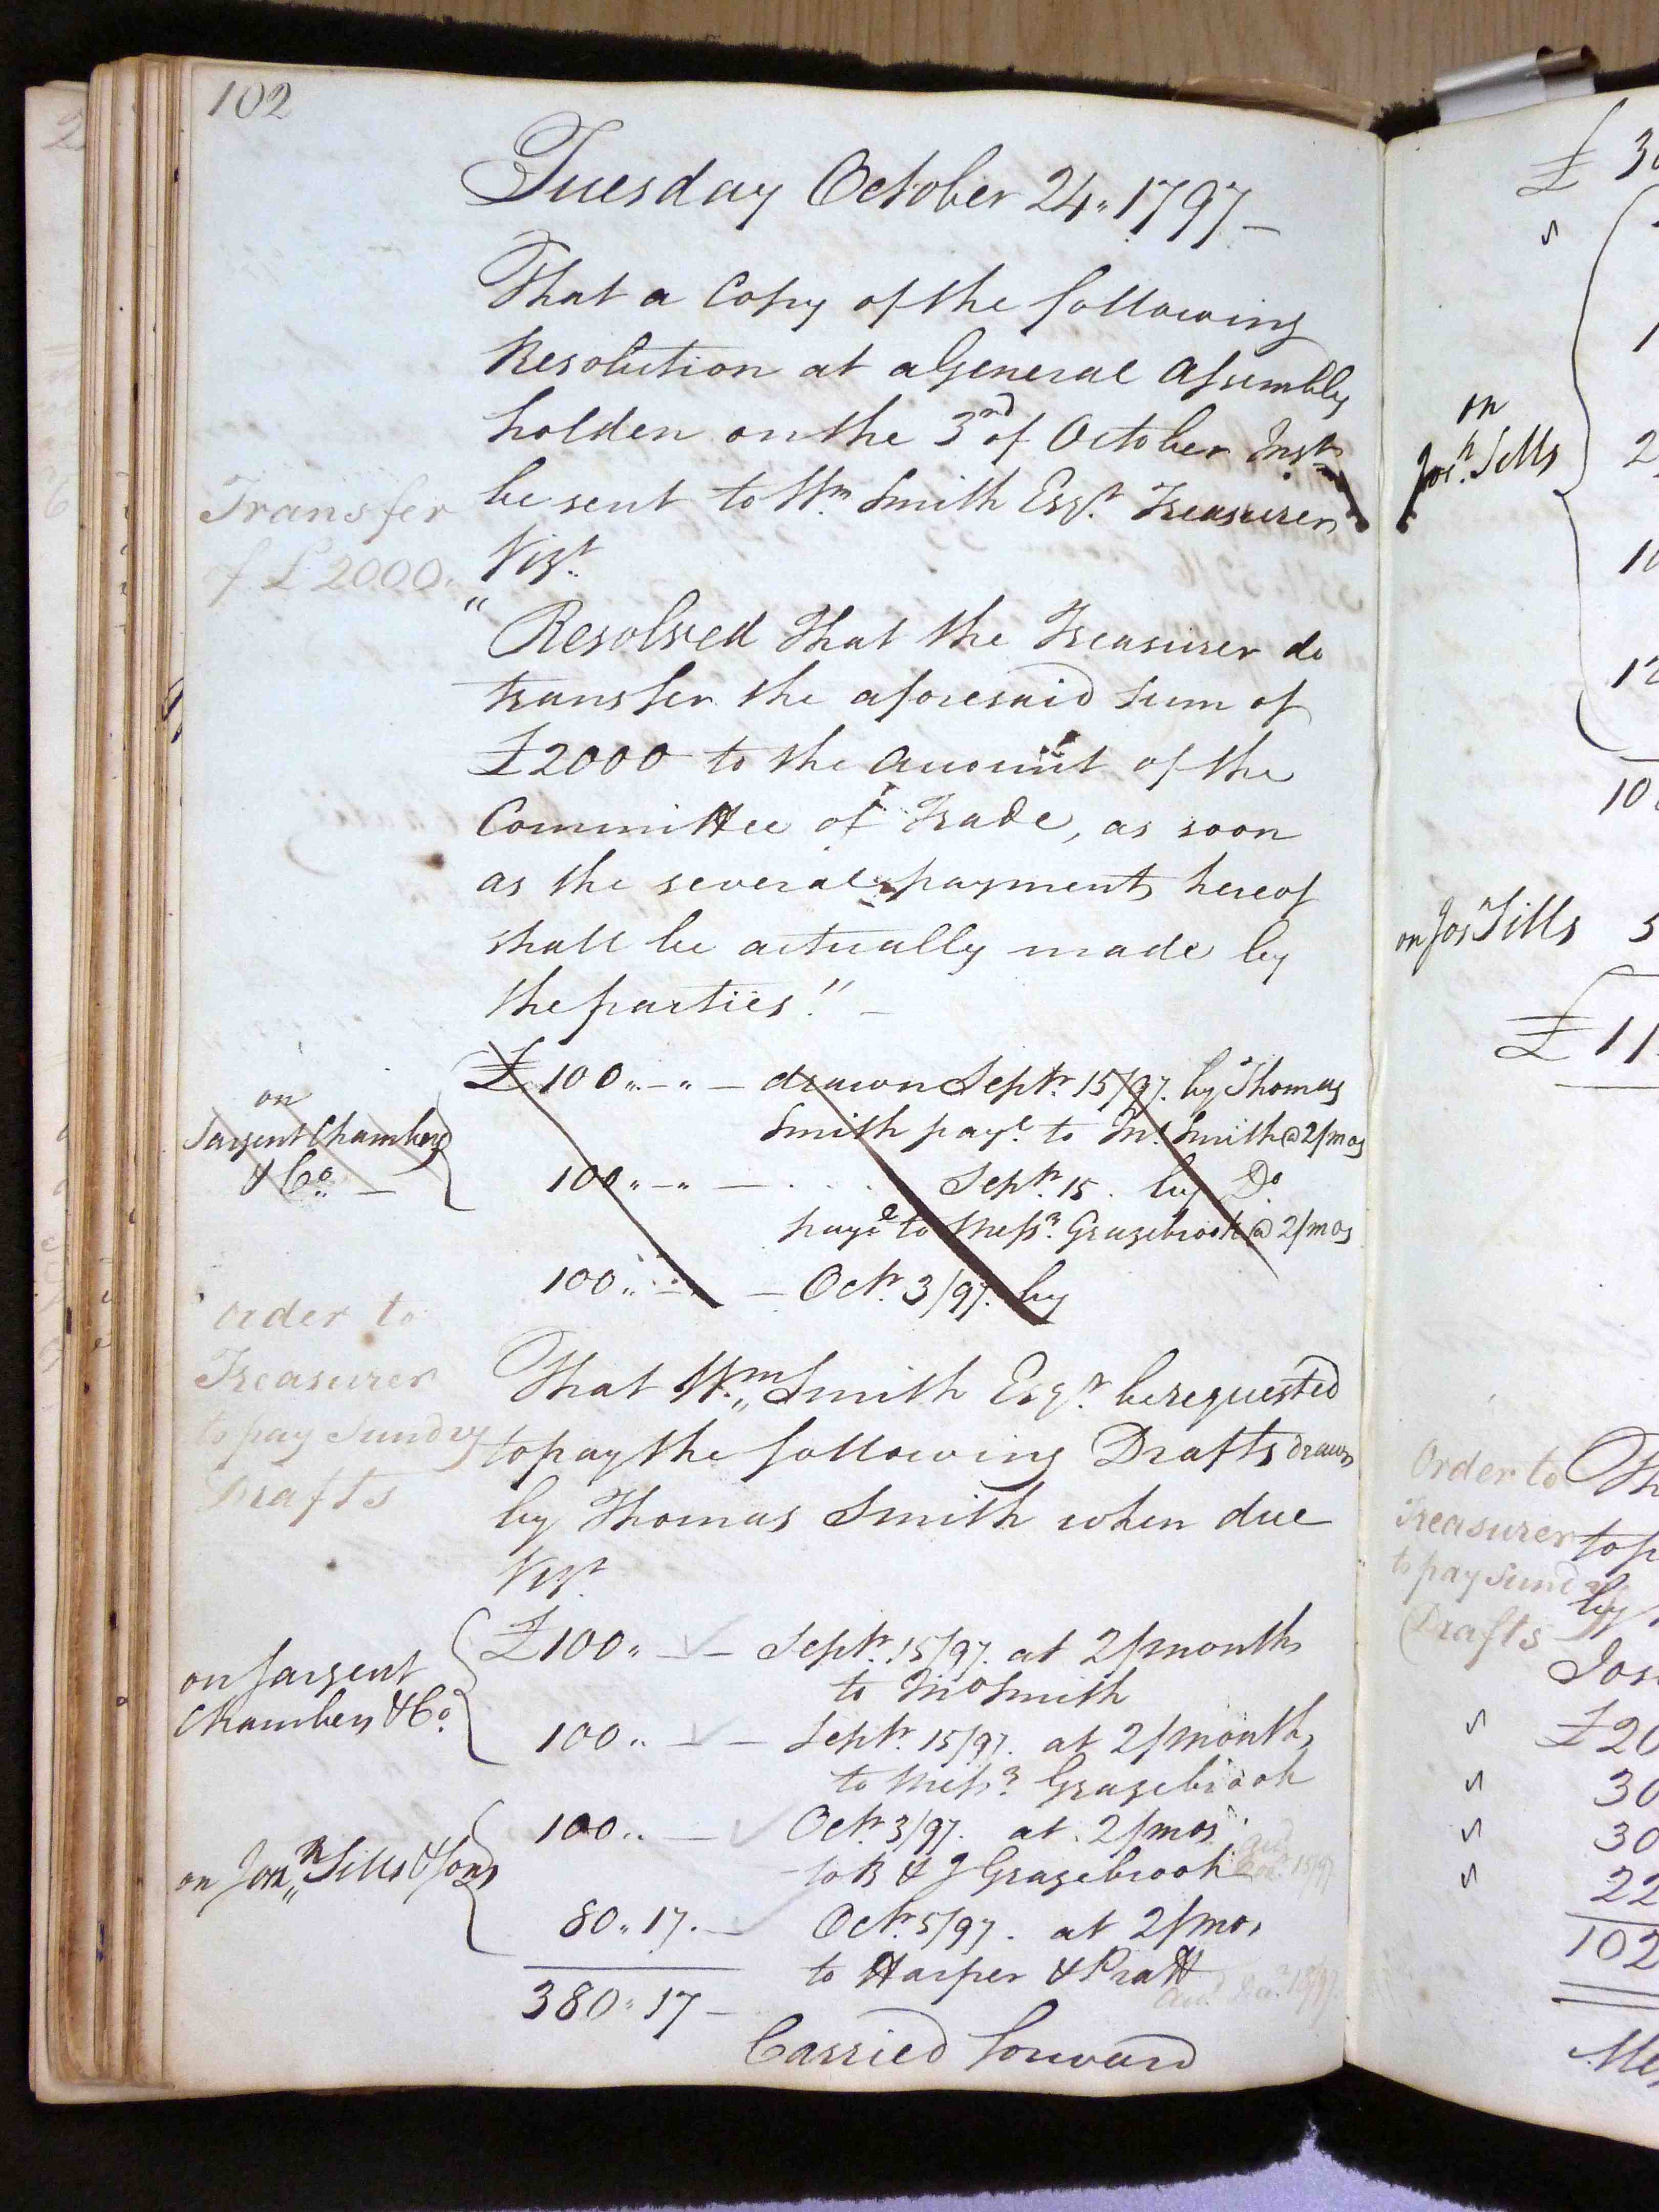 102
Tuesday October 24. 1797 —
That a Copy of the following
Resolution at a General Assembly
holden on the 3rd of October Inst
Transfer
of £2000.
be sent to Wm Smith Esqr. Treasurer
Vizt.
"Resolved That the Treasurer do
transfer the aforesaid sum of
£2000 to the Account of the
Committee of Trade, as soon
as the several payments hereof
shall be actually made by
the parties." —
on
Sargent Chambers
& Co. —
£100 " - " — drawn Septr. 15/97. by Thomas
Smith paye. to Jno. Smith @ 2/mos
100 " - " — . . . Septr. 15. by Do.
paye to Messrs. Grazebrook @ 2/mos
100 " — — Octr. 3/97. by
Order to
Treasurer
to pay Sundry
Drafts
That Wm. Smith Esqr. be requested
to pay the following Drafts drawn
by Thomas Smith when due
Vizt.
on Sargent
Chambers & Co.
£100 " — Septr. 15/97. at 2/months
to Jno Smith
100 " — — Septr. 15/97. at 2/months
to Messrs. Grazebrook
on Jonn. Sills & Sons
100 " — Octr. 3/97. at 2/mos.
to B & J Grazebrook
80 " 17. — Octr. 5/97. at 2/mos
to Harper & Pratt
380 " 17 —
Carried forward
£ 30
on
Josh. Sills
on Josh Sills 5
£ 11
Order to
Treasurer
to pay Sundry
Drafts
Th
to p
by
Jos
£20
30
30
22
102